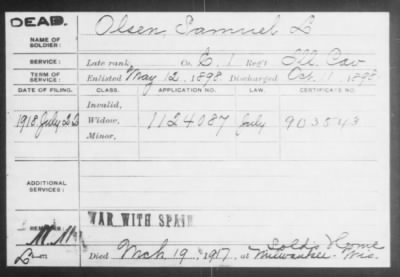 DEAD.
NAME OF SOLDIER: Olsen, Samuel L
SERVICE: Late rank, Co. L, 1 Reg't Ill. Cav
TERM OF SERVICE: Enlisted May 12, 1898, Discharged Oct. 11, 1898
DATE OF FILING. CLASS. APPLICATION NO. LAW. CERTIFICATE NO.
Invalid,
1918 July 22 Widow, 1124087 July 903543
Minor,
ADDITIONAL SERVICES:
WAR WITH SPAIN
REMARKS:
Died Mch 19, 1917, at Solds Home
Milwaukee. Wis.